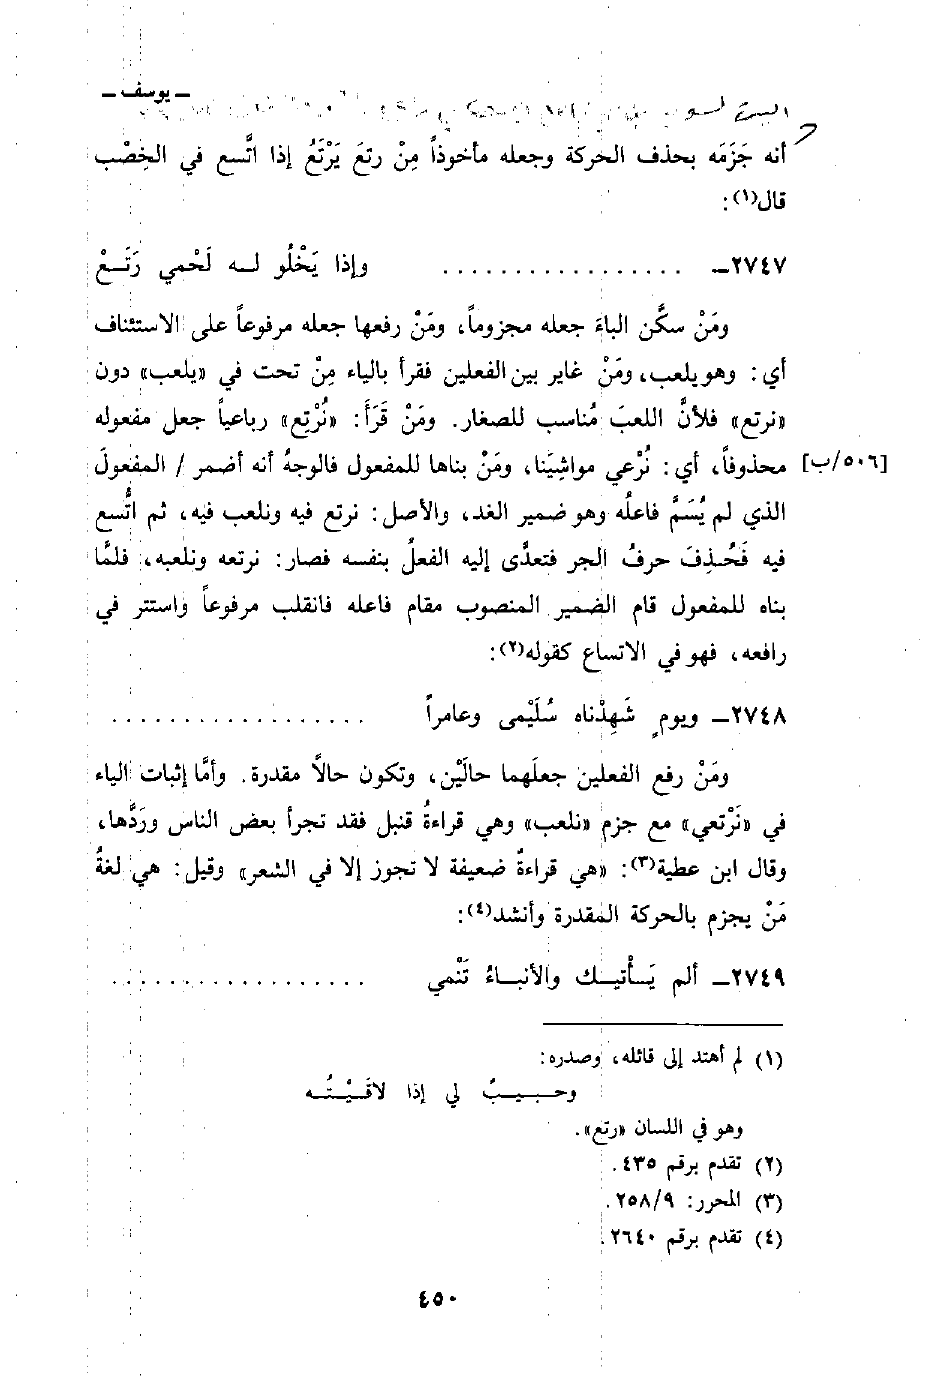 ـ يوسف ـ
أنه جَزَمَه بحذف الحركة وجعله مأخوذاً مِنْ رتعَ يَرْتَعُ إذا اتَّسع في الخِصْب
قال(١):
٢٧٤٧ـ . . . . . . . . . . . . . . . . . وإذا يَخْلُو لـه لَحْمي رَتَـعْ
ومَنْ سكَّن الباءَ جعله مجزوماً، ومَنْ رفعها جعله مرفوعاً على الاستئناف
أي: وهو يلعب، ومَنْ غاير بين الفعلين فقرأ بالياء مِنْ تحت في «يلعب» دون
«نرتع» فلأنَّ اللعبَ مُناسب للصغار. ومَنْ قَرَأَ: «نُرْتِع» رباعياً جعل مفعوله
محذوفاً، أي: نُرْعي مواشِيَنا، ومَنْ بناها للمفعول فالوجهُ أنه أضمر / المفعولَ [٥٠٦/ب]
الذي لم يُسَمَّ فاعلُه وهو ضمير الغد، والأصل: نرتع فيه ونلعب فيه، ثم اتُّسع
فيه فَحُـذِفَ حرفُ الجر فتعدَّى إليه الفعلُ بنفسه فصار: نرتعه ونلعبه، فلمَّا
بناه للمفعول قام الضمير المنصوب مقام فاعله فانقلب مرفوعاً واستتر في
رافعه، فهو في الاتساع كقوله(٢):
٢٧٤٨ـ ويومٍ شَهِدْناه سُلَيْمى وعامراً . . . . . . . . . . . . . . . . . .
ومَنْ رفع الفعلين جعلَهما حالَيْن، وتكون حالاً مقدرة. وأمَّا إثبات الياء
في «نَرْتعي» مع جزم «نلعب» وهي قراءةُ قنبل فقد تجرأ بعض الناس ورَدَّها،
وقال ابن عطية(٣): «هي قراءةٌ ضعيفة لا تجوز إلا في الشعر» وقيل: هي لغةُ
مَنْ يجزم بالحركة المقدرة وأنشد(٤):
٢٧٤٩ـ ألم يَـأْتيـك والأنبـاءُ تَنْمي . . . . . . . . . . . . . . . . . .
(١) لم أهتد إلى قائله، وصدره:
وحـبـيـبٌ لي إذا لاقَـيْـتُـه
وهو في اللسان «رتع».
(٢) تقدم برقم ٤٣٥.
(٣) المحرر: ٢٥٨/٩.
(٤) تقدم برقم ٢٦٤٠.
٤٥٠